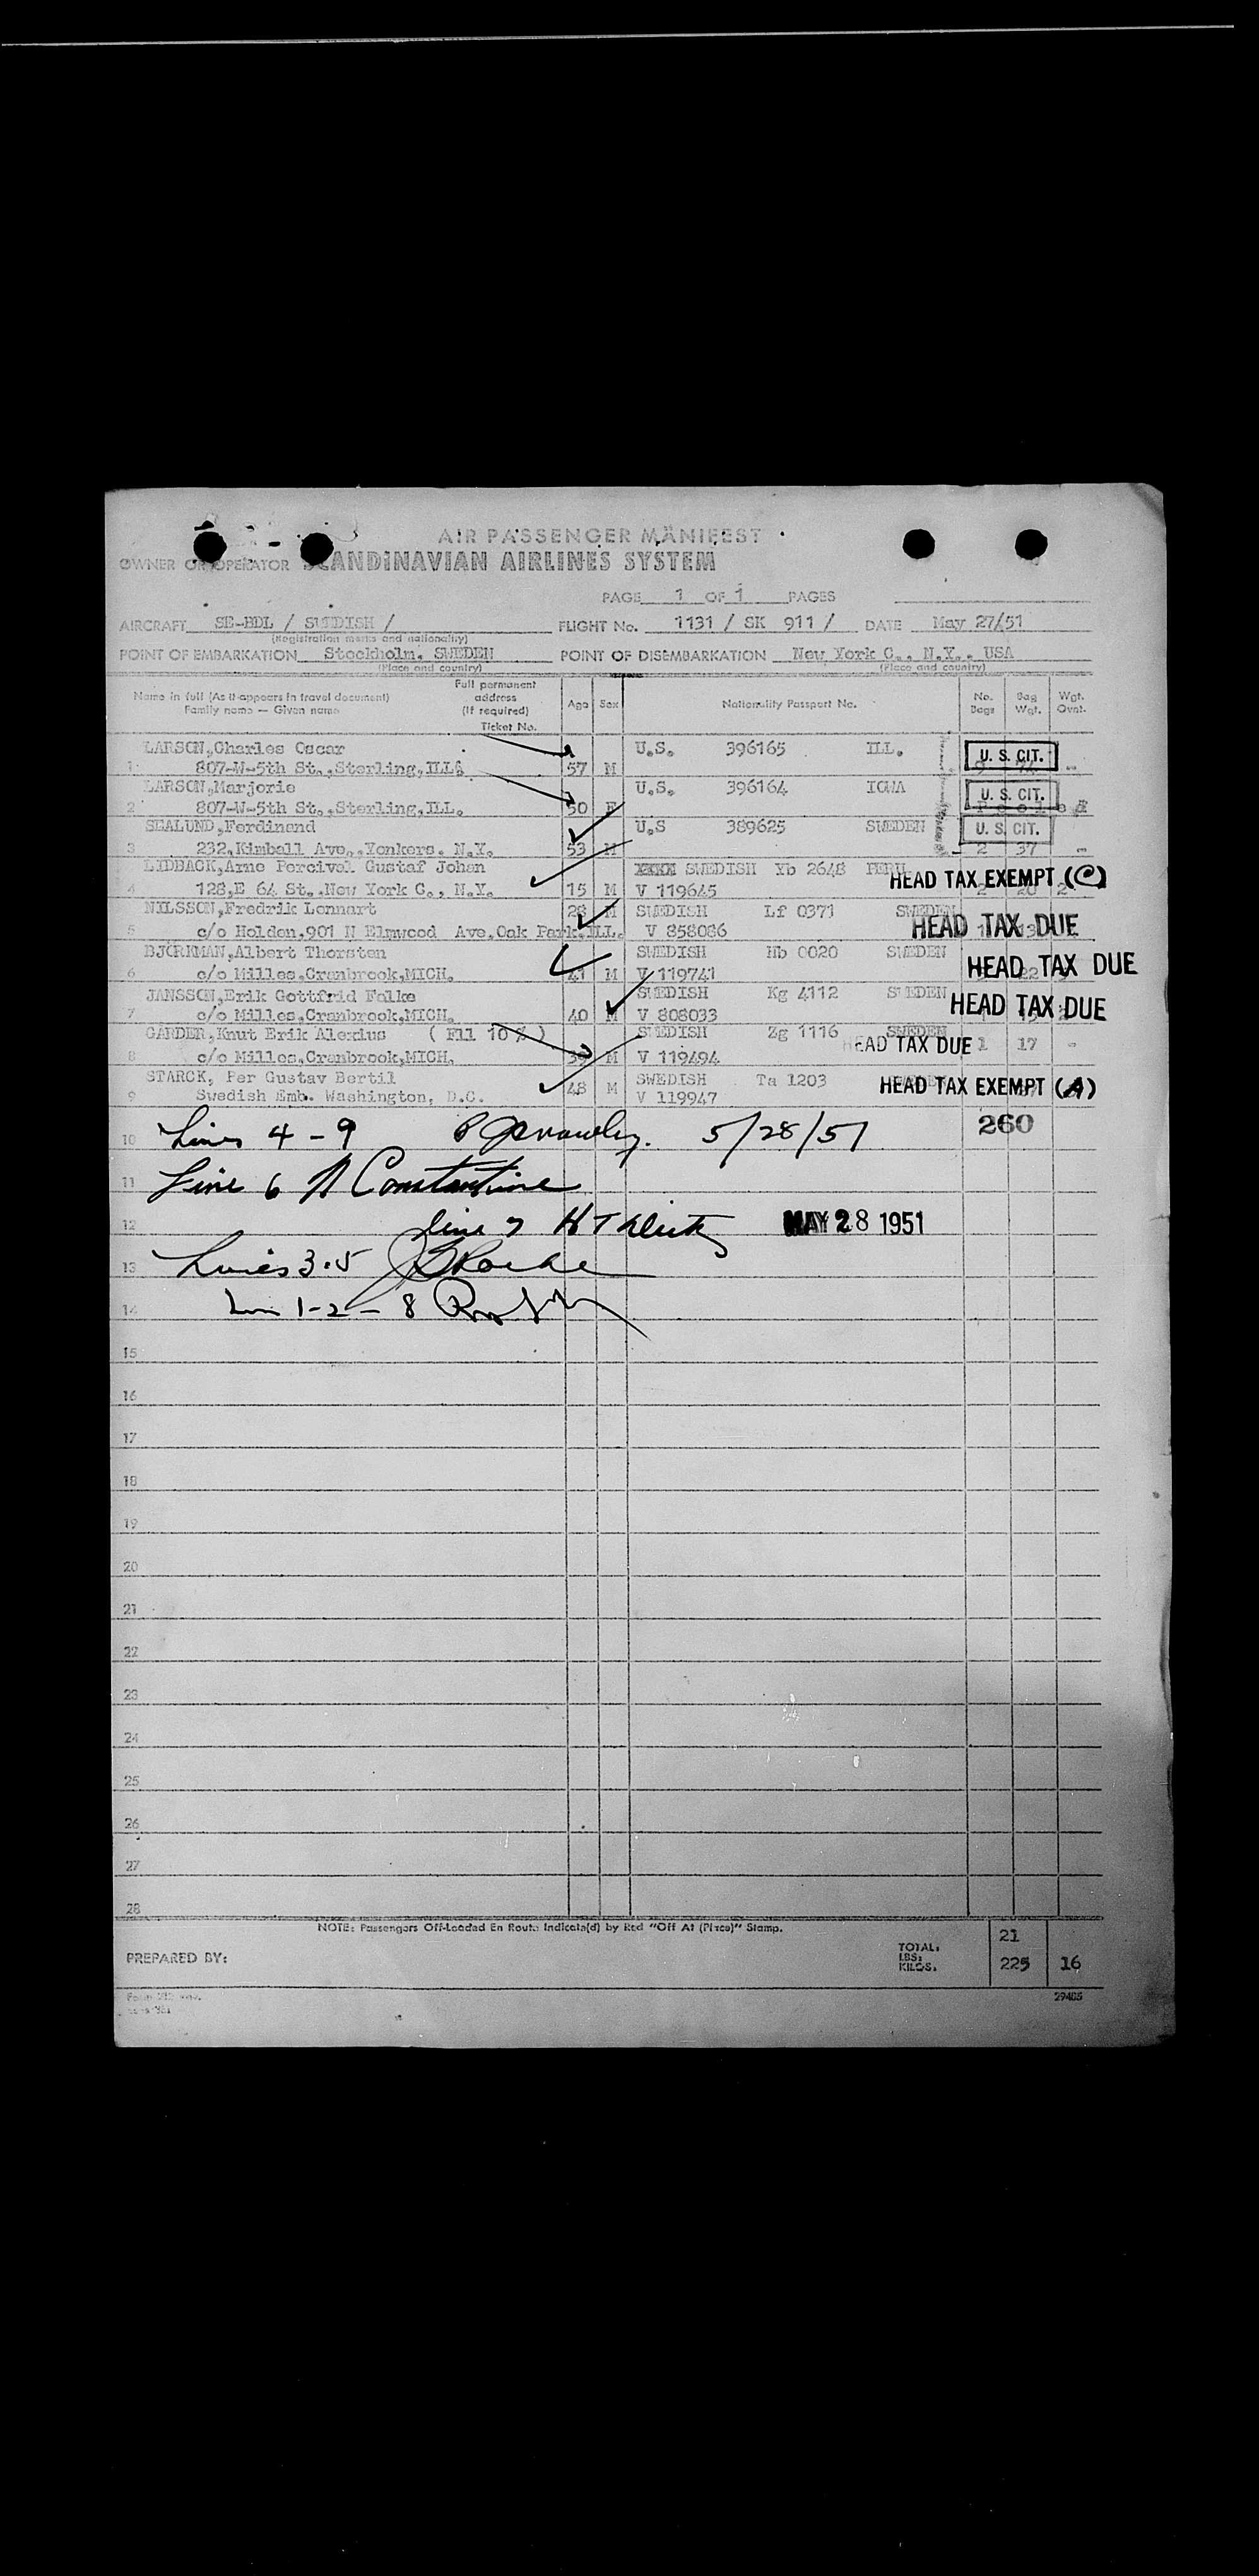 AIR PASSENGER MANIFEST
OWNER OR OPERATOR SCANDINAVIAN AIRLINES SYSTEM
PAGE 1 OF 1 PAGES
AIRCRAFT SE-BDL / SWEDISH / FLIGHT No. 1131 / SK 911 / DATE May 27/51
(Registration marks and nationality)
POINT OF EMBARKATION Stockholm, SWEDEN POINT OF DISEMBARKATION New York C., N.Y., USA
(Place and country) (Place and country)
Name in full (As it appears in travel document) Family name — Given name Full permanent address (If required) Ticket No. Age Sex Nationality Passport No. No. Bags Bag Wgt. Wgt. Ovnt.
LARSON,Charles Oscar U.S. 396165 ILL. U. S. CIT.
1 807-W-5th St.,Sterling,ILL. 57 M
LARSON,Marjorie U.S. 396164 IOWA U. S. CIT.
2 807-W-5th St.,Sterling,ILL. 50 F
SEALUND,Ferdinand U.S 389625 SWEDEN U. S. CIT.
3 232,Kimball Ave.,Yonkers. N.Y. 53 M 2 37 -
LIDBACK,Arne Percival Gustaf Johan SWEDISH Yb 2648 PERU HEAD TAX EXEMPT (C)
4 128,E 64 St.,New York C., N.Y. 15 M V 119645
NILSSON,Fredrik Lennart 28 M SWEDISH Lf 0371 SWEDEN HEAD TAX DUE
5 c/o Holden,901 N Elmwood Ave,Oak Park,ILL. V 858086
BJORKMAN,Albert Thorsten SWEDISH Hb 0020 SWEDEN HEAD TAX DUE
6 c/o Milles,Cranbrook,MICH. 41 M V 119741
JANSSON,Erik Gottfrid Folke SWEDISH Kg 4112 SWEDEN HEAD TAX DUE
7 c/o Milles,Cranbrook,MICH. 40 M V 808033
GARDER,Knut Erik Alexius ( Ell 10 % ) SWEDISH Zg 1116 SWEDEN HEAD TAX DUE
8 c/o Milles,Cranbrook,MICH. 39 M V 119494 1 17 -
STARCK, Per Gustav Bertil SWEDISH Ta 1203 HEAD TAX EXEMPT (A)
9 Swedish Emb. Washington, D.C. 48 M V 119947
10 Lines 4 - 9 5/28/51 260
11 Line 6 N Constantine
12 line 7 MAY 28 1951
13 Lines 3.5
14 1-2-8
15
16
17
18
19
20
21
22
23
24
25
26
27
28
NOTE: Passengers Off-Loaded En Route Indicate(d) by Red "Off At (Place)" Stamp.
PREPARED BY: TOTAL: 21
LBS:
KILOS. 225 16
29485